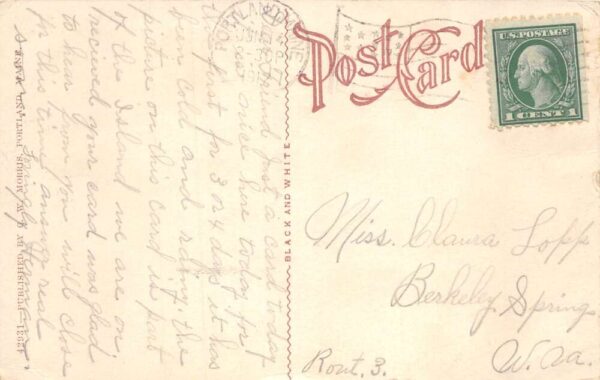 Post Card
1 CENT 1
BLACK AND WHITE
Friend Just a card today
nice here today for
the first for 3 or 4 days it has
ben cold and raing. the
picture on this card is part
of the Island we are on.
received your card was glad
to hear from you will close
for this time answer real
PUBLISHED BY MORRIS, PORTLAND, MAINE
Miss. Claura Lopp
Berkeley Springs
W. Va.
Rout. 3.